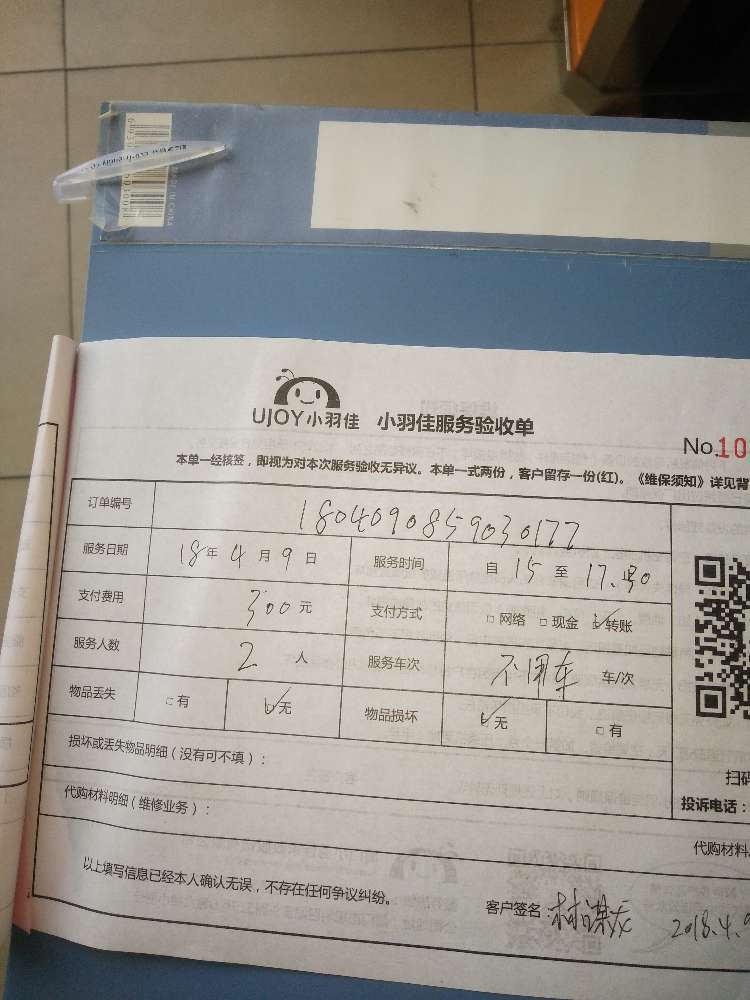 UJOY小羽佳 小羽佳服务验收单
No.10
本单一经核签，即视为对本次服务验收无异议。本单一式两份，客户留存一份(红)。《维保须知》详见背
订单编号 180409085903017
服务日期 18年4月9日 服务时间 自15至17.30
支付费用 300元 支付方式 □网络 □现金 ☑转账
服务人数 2人 服务车次 不用车 车/次
物品丢失 □有 ☑无 物品损坏 ☑无 □有
损坏或丢失物品明细（没有可不填）：
扫码
代购材料明细（维修业务）：
投诉电话：
代购材料
以上填写信息已经本人确认无误，不存在任何争议纠纷。
客户签名: 2018.4.9